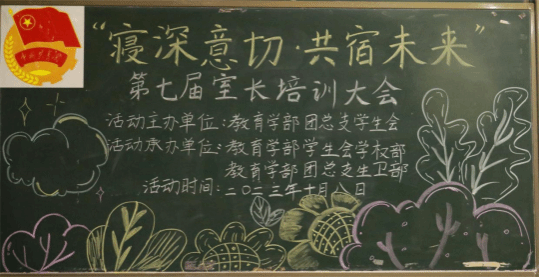 “寝深意切·共宿未来”
第七届室长培训大会
活动主办单位:教育学部团总支学生会
活动承办单位:教育学部学生会学权部
教育学部团总支生卫部
活动时间:二〇二三年十月八日